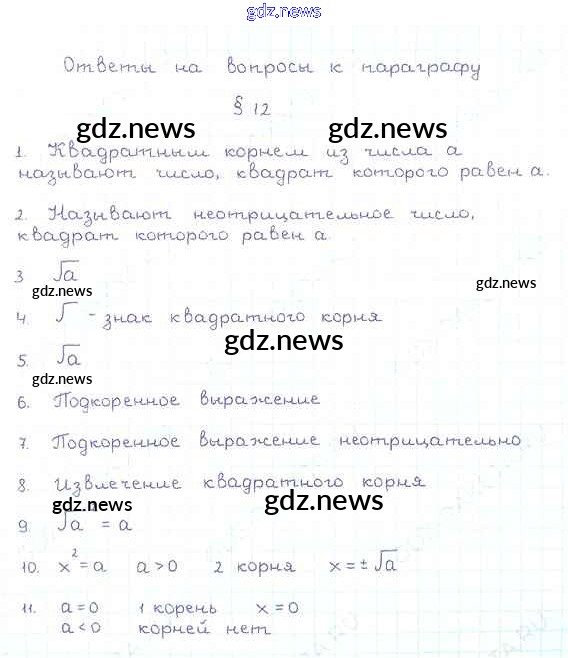 gdz.news
Ответы на вопросы к параграфу
§ 12
gdz.news gdz.news
1. Квадратным корнем из числа а
называют число, квадрат которого равен а.
2. Называют неотрицательное число,
квадрат которого равен а.
3 √а
gdz.news gdz.news
4. √ - знак квадратного корня
gdz.news
5. √а
gdz.news
6. Подкоренное выражение
7. Подкоренное выражение неотрицательно
8. Извлечение квадратного корня
gdz.news gdz.news
9. √а² = а
10. x² = a a > 0 2 корня x = ± √a
11. a = 0 1 корень x = 0
a < 0 корней нет